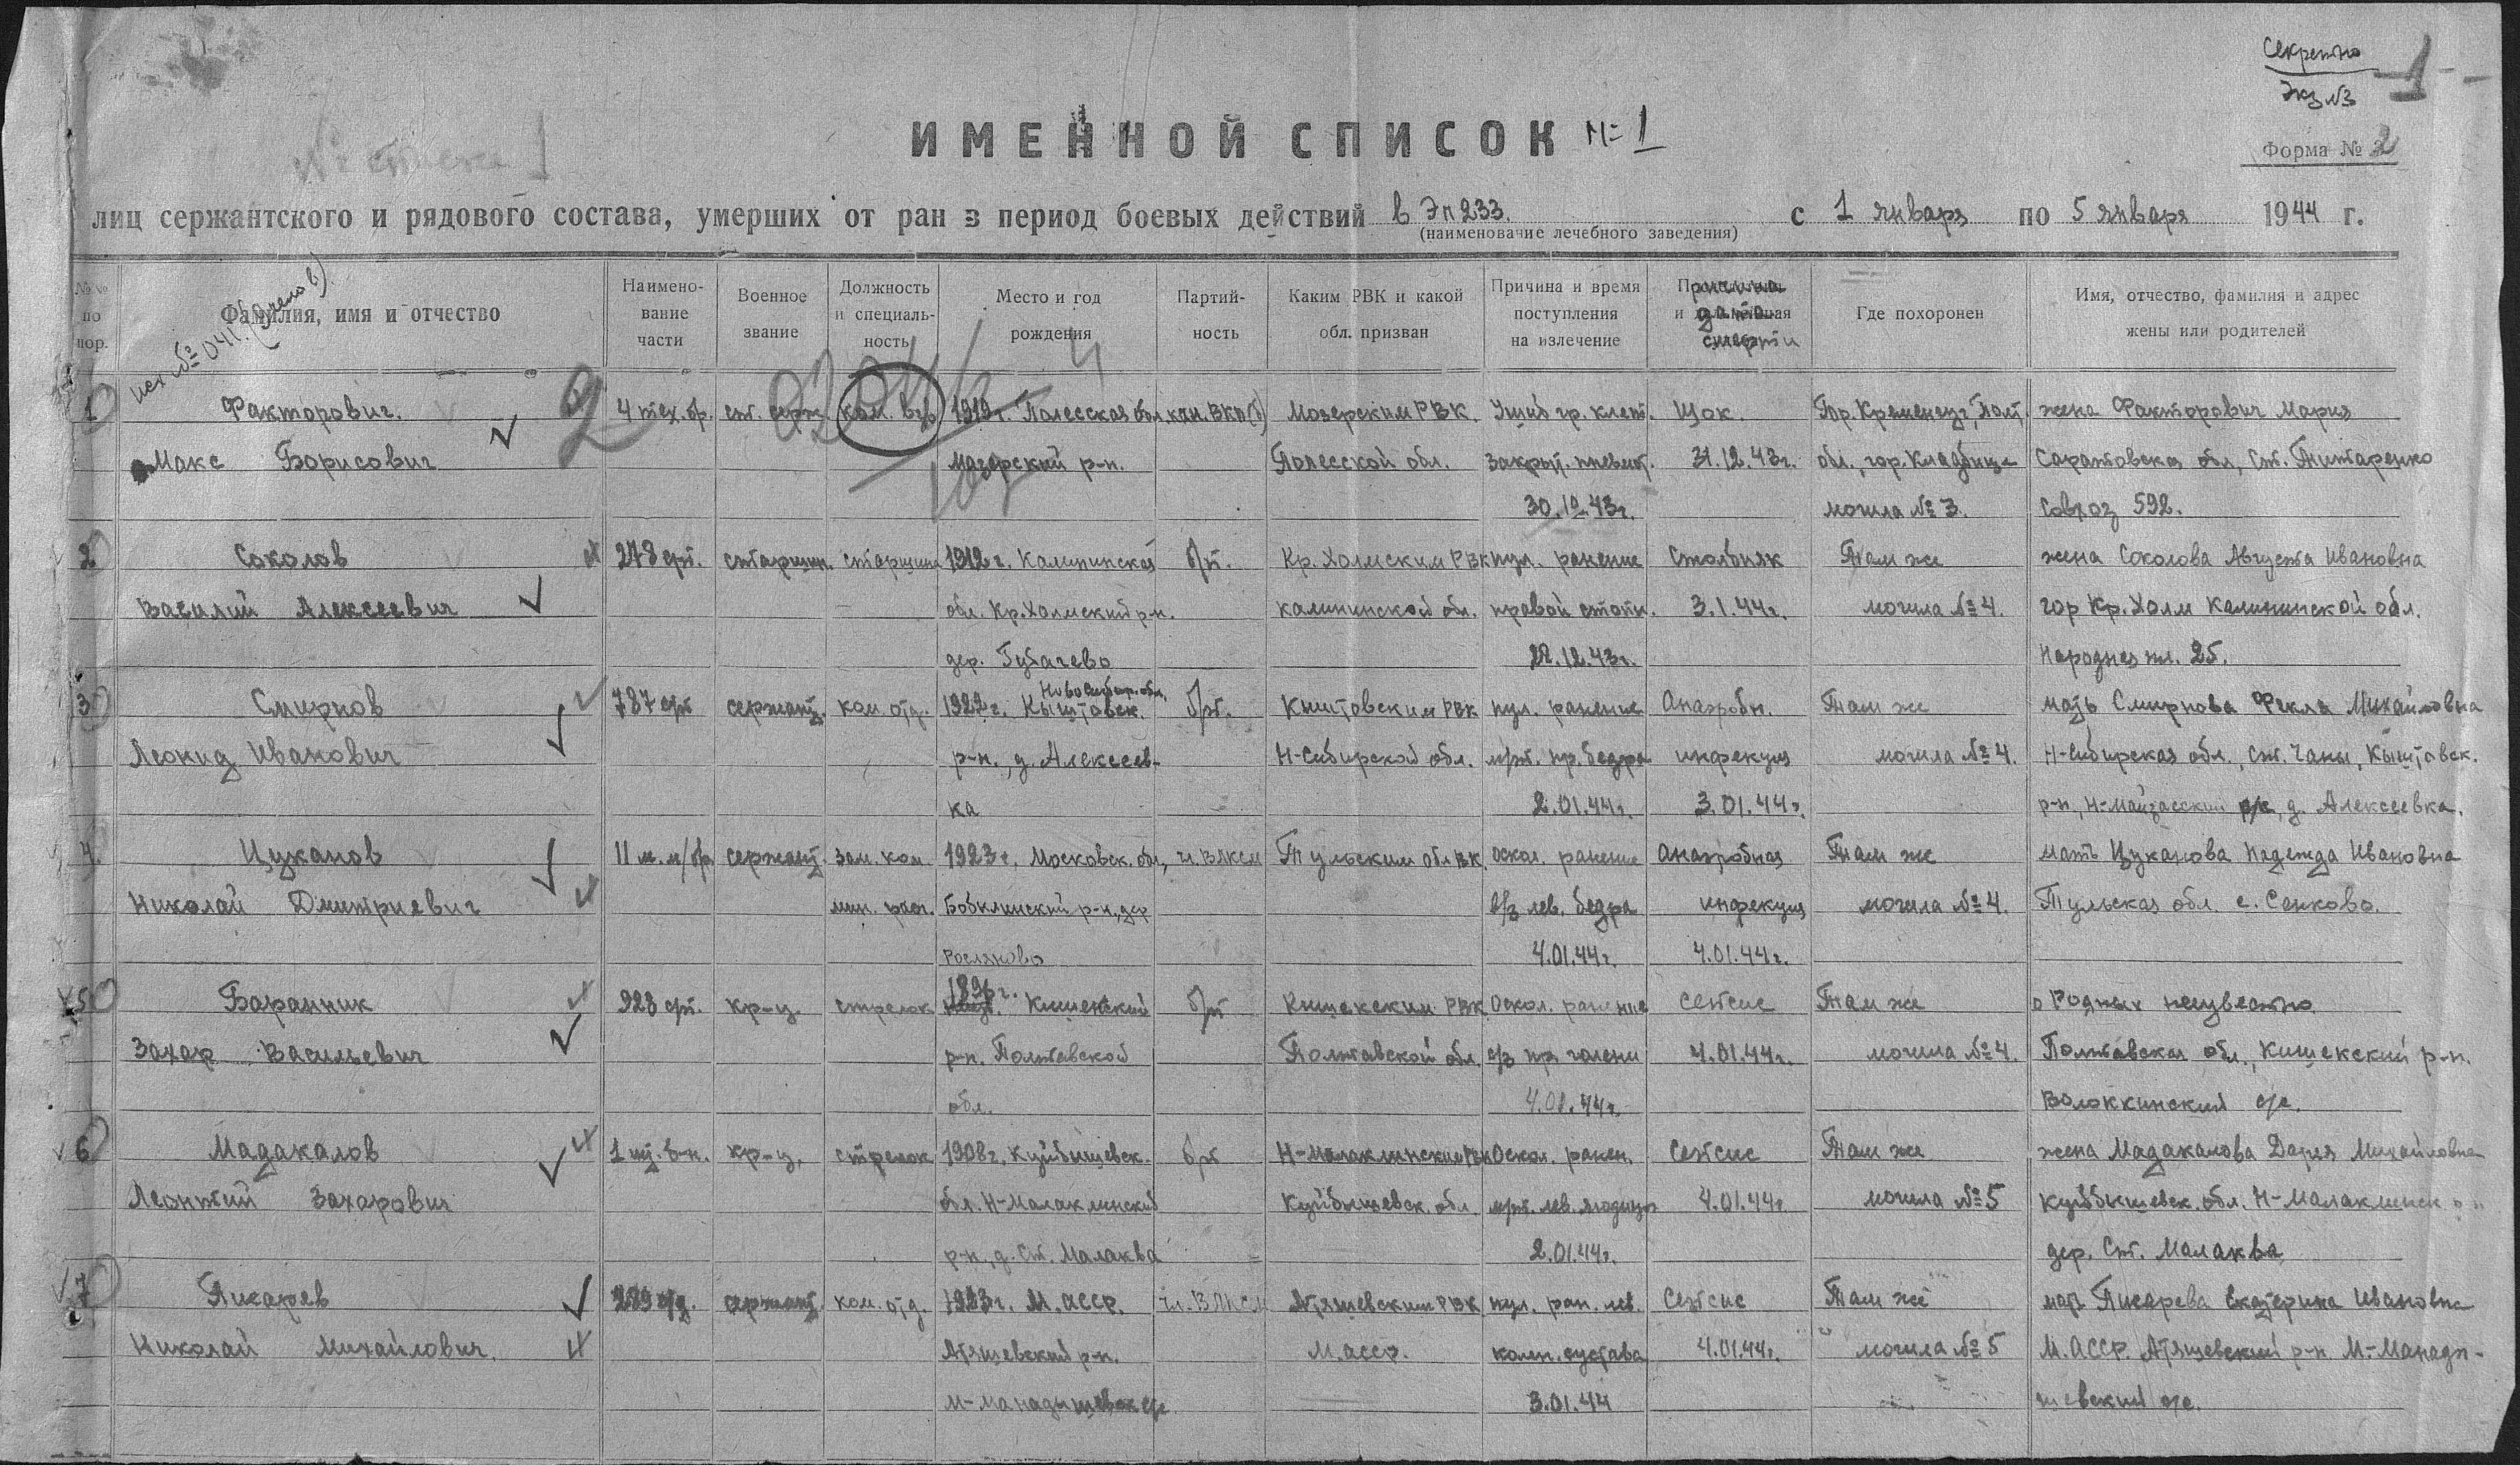 Секретно
Экз №3
-1-
ИМЕННОЙ СПИСОК №1
Форма № 2
лиц сержантского и рядового состава, умерших от ран в период боевых действий в Эп 233. с 1 января по 5 января 1944 г.
(наименование лечебного заведения)
исх №041
№№ по пор.
Фамилия, имя и отчество
Наимено-вание части
Военное звание
Должность и специаль-ность
Место и год рождения
Партий-ность
Каким РВК и какой обл. призван
Причина и время поступления на излечение
дата смерти
Где похоронен
Имя, отчество, фамилия и адрес жены или родителей
1 Факторович. 4 тех. бр. ст. серж. ком. взв 1919 г. Полесская обл. ВКП(б) Мозерским РВК. Ушиб гр. клет. Шок. Гор. Кременчуг, Полт. жена Факторович Мария
Макс Борисович Мазерский р-н. Полесской обл. закрыт. 31.12.43г. обл., гор. кладбище Саратовская обл, ст. Титаренко
30.12.43г. могила №3. Совхоз 592.
2 Соколов 278 сп. старшин. старшина 1912 г. Калининская б/п. Кр. Холмским РВК пул. ранение Столбняк Там же жена Соколова Августа Ивановна
Василий Алексеевич обл. Кр. Холмский р-н. калининской обл. правой стопы. 3.1.44г. могила №4. гор Кр. Холм Калининской обл.
дер. Губачево 22.12.43г. Народная пл. 25.
3 Смирнов 787 сп сержант. ком. отд. 1922 г. Новосибир. обл, Кыштовск. б/п. Кыштовским РВК пул. ранение Анаэробн. Там же мать Смирнова Фекла Михайловна
Леонид Иванович р-н., д. Алексеев- Н-Сибирской обл. м/т. пр. бедра инфекция могила №4. Н-Сибирская обл., ст. Чаны, Кыштовск.
ка 2.01.44г. 3.01.44г. р-н, Н-Майзасский с/с, д. Алексеевка.
4. Цуканов 11 м.м/бр сержант. зам. ком. 1923 г. Московск. обл, чл. ВЛКСМ Тульским облВК. оскол. ранение анаэробная Там же мать Цуканова Надежда Ивановна
Николай Дмитриевич мин. расч. р-н, дер в/з лев. бедра инфекция могила №4. Тульская обл. с. Сенково.
4.01.44г. 4.01.44г.
5 Баранник 923 сп. кр-ц. стрелок 1897 г. Кишенский б/п Кишекским РВК. Оскол. ранение сепсис Там же о Родных неизвестно
Захар Васильевич р-н. Полтавской Полтавской обл. с/з пр голени 4.01.44г. могила №4. Полтавская обл., Кишекский р-н.
обл. 4.01.44г. с/с.
6 Мадакалов 1 шт. б-н. кр-ц. стрелок 1908 г. Куйбышевск. б/п Н-Малаклинским Оскол. ранен. Сепсис Там же жена Мадакалова Дария Михайловна
Леонтий Захарович обл. Н-Малаклинский Куйбышевск. обл м/т. лев. ягодицы 4.01.44г могила №5 Куйбышевск. обл. Н-Малаклинск
р-н, д. Ст. Малаква 2.01.44г. дер. Ст. Малаква
7 Пикарев сержант. ком. отд. 1923 г. М. АССР. чл. ВЛКСМ Атяшевским РВК пул. ран. лев. Сепсис Там же мать Писарева Екатерина Ивановна
Николай Михайлович. Атяшевский р-н. М. АССР. колен. сустава 4.01.44г. могила №5 М. АССР. Атяшевский р-н М-Манады-
3.01.44 шевский с/с.